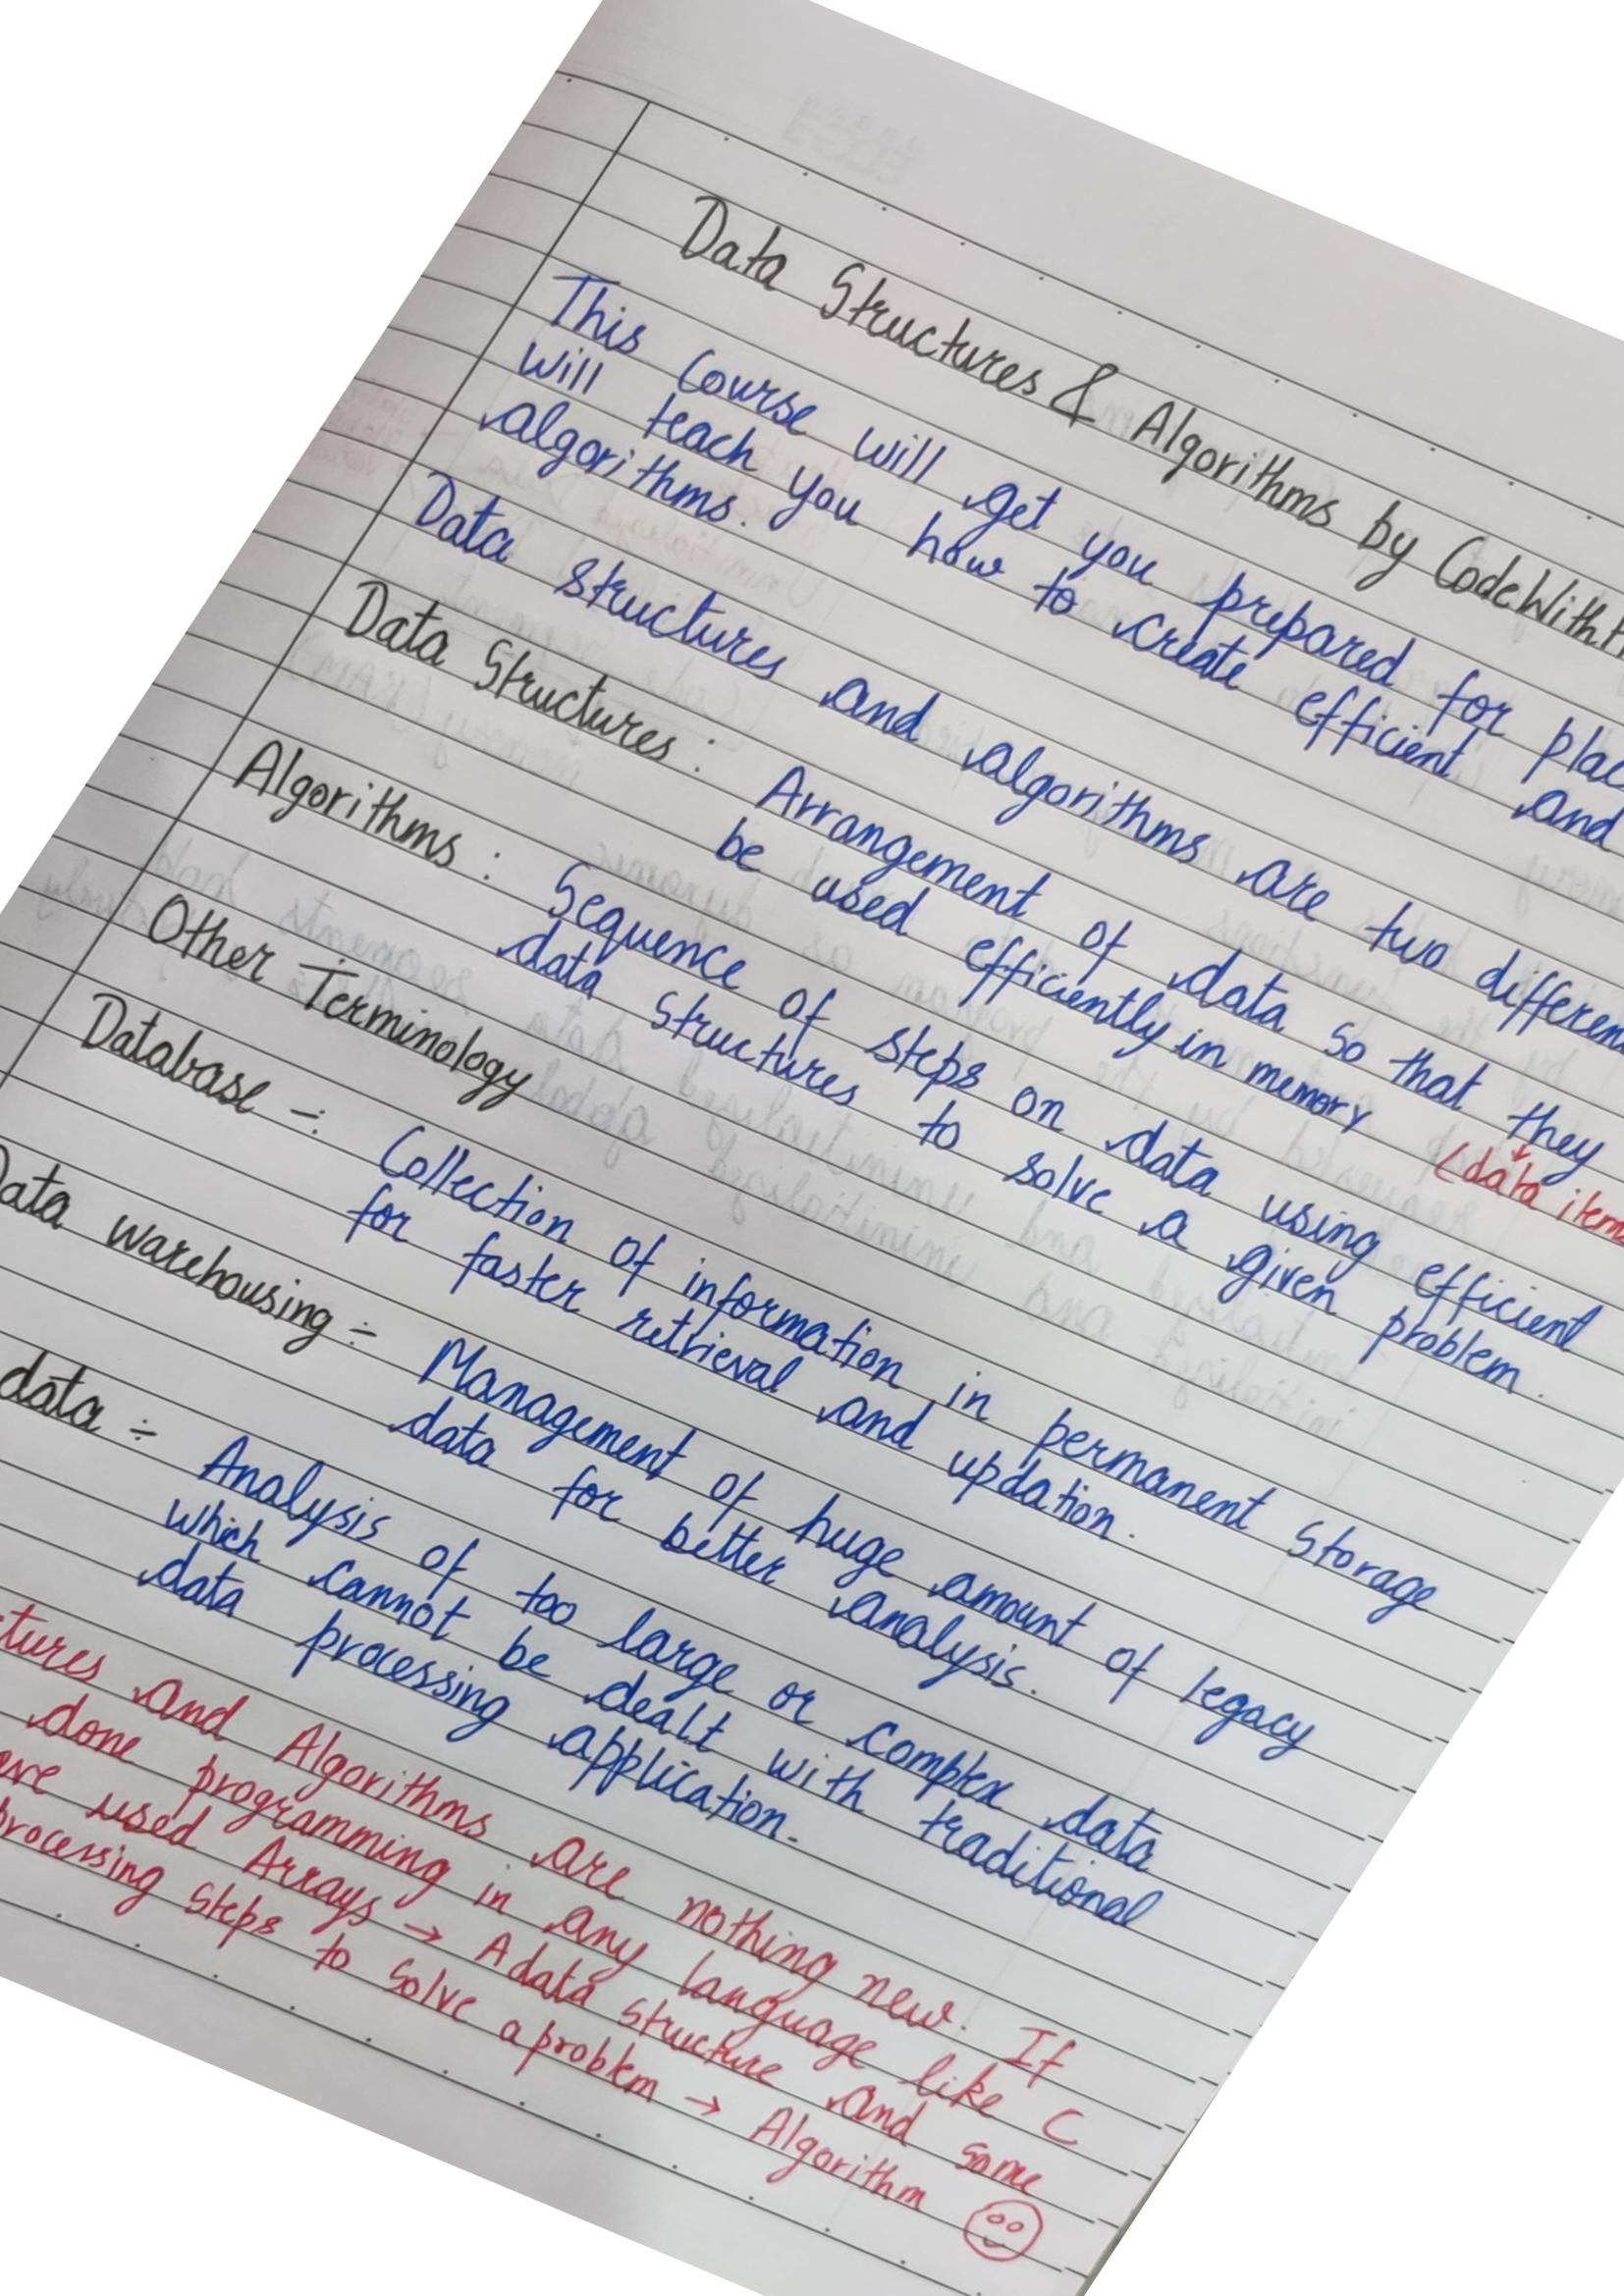 Data Structures & Algorithms by CodeWithH
This Course will get you prepared for plac
will teach you how to create efficient and
algorithms.
Data structures and algorithms are two differen
Data Structures : Arrangement of data so that they
(data item
be used efficiently in memory
Algorithms : Sequence of steps on data using efficient
data structures to solve a given problem.
Other Terminology
Database -: Collection of information in permanent storage
for faster retrieval and updation.
Data warehousing ÷ Management of huge amount of legacy
data for better analysis.
data ÷ Analysis of too large or complex data
which cannot be dealt with traditional
data processing application.
tures and Algorithms are nothing new. If
done programming in any language like C
ave used Arrays → A data structure and some
processing steps to solve a problem → Algorithm